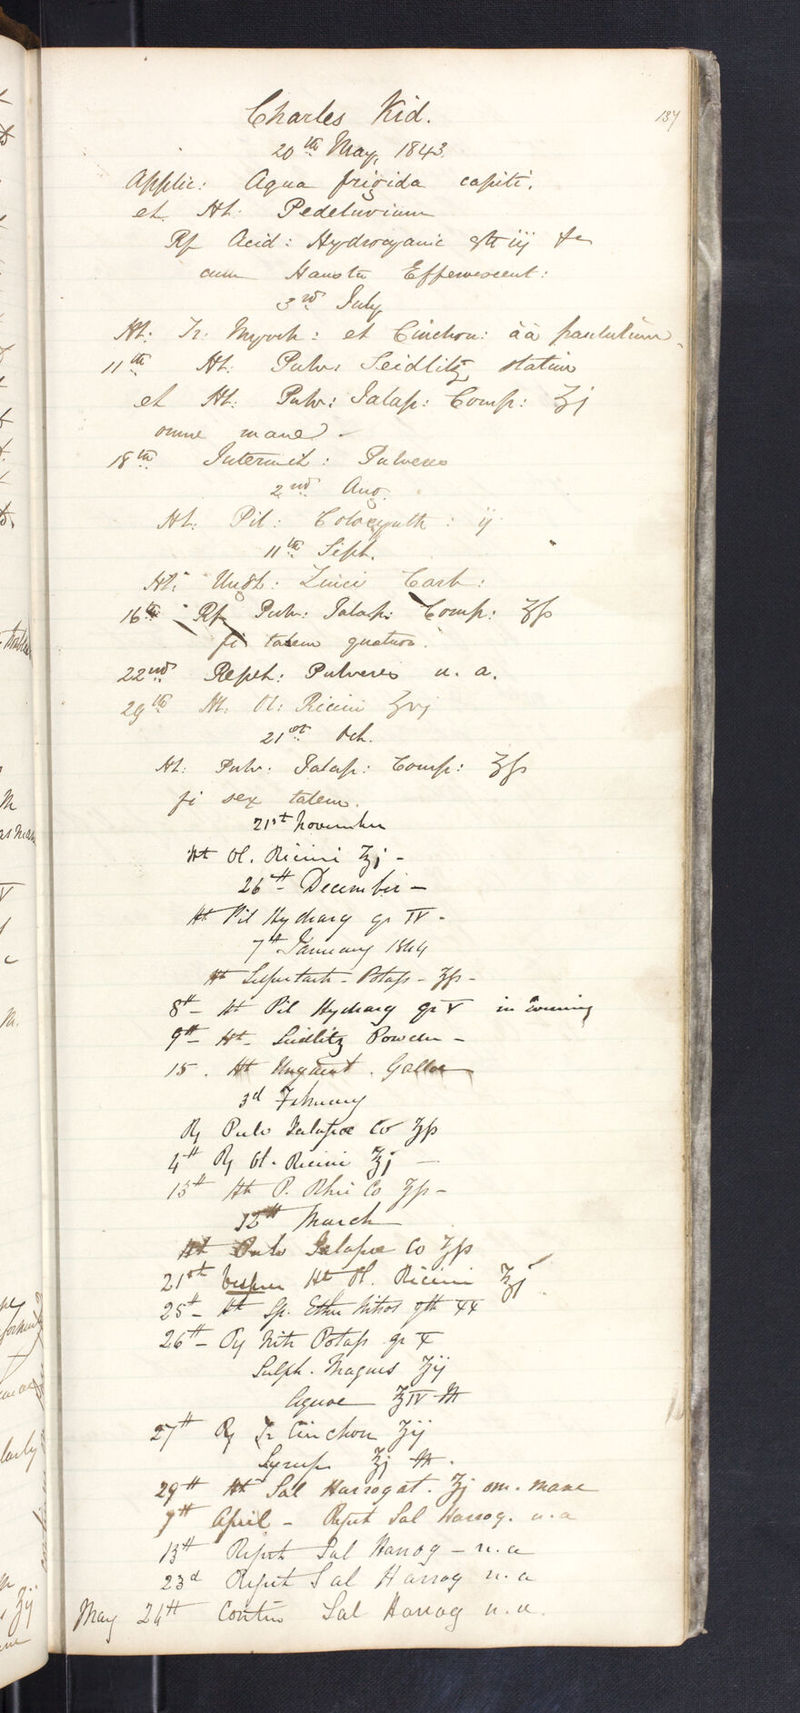 137
Charles Kid.
20th May, 1843
Applic: Aqua frigida capiti.
et Ht: Pedeluvium
Rf Acid: Hydrocyanic gtt iij
cum Haustu Effervescent:
3rd July
Ht: Tr: Myrrh: et Cinchon: āā paululum.
11th Ht: Pulv: Seidlitz statim
et Ht: Pulv: Jalap: Comp: ʒj
omne mane
18th Intermit: Pulveres
2nd Aug.
Ht: Pil: Colocynth: ij
11th Sept.
Ht: Ungt: Zinci Carb:
16th Rf Pulv: Jalap: Comp: ʒſs
fi talem quatuor.
22nd Repet: Pulveres u. a.
29th Ht. Ol: Ricini ʒvj
21st Oct.
Ht: Pulv: Jalap: Comp: ʒſs
fi sex talem.
21st November
Ht Ol. Ricini ℥j -
26th December -
Ht Pil Hydrarg gr IV -
7th January 1844
Ht Supertart - Potass - ʒſs -
8th - Ht Pil Hydrarg gr V in Evening
9th - Ht. Seidlitz Powder -
15. Ht Unguent. Gallae
3rd February
℞ Pulv Jalapae Co ʒſs
4th ℞ Ol. Ricini ℥j -
13th Ht P. Rhei Co ʒſs -
12th March
Ht Pulv Jalapae Co ʒſs
21st Vespere Ht Ol. Ricini ℥j
25th - Ht Sp. Ether Nitros gtt XX
26th - ℞ Nitr Potass gr X
Sulph. Magnes ʒij
Aquae ℥IV M
27th ℞ Tr Cinchon ʒij
Syrup ℥j M.
29th Ht Sal Harrogat. ʒj om. mane
7th April - Repet Sal Harrog. u. a
13th Repet Sal Harrog - u. a
23d Repet Sal Harrog u. a
May 24th Contin Sal Harrog u. a.